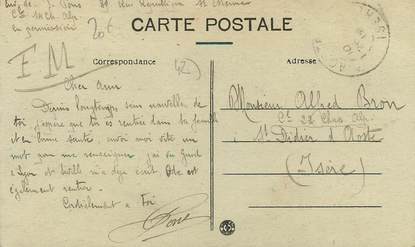 J. Pons 89 Rue République St Etienne
Cie Ch. Alp.
en permission
20f
F M
CARTE POSTALE
Correspondance
Adresse
Cher Ami
Depuis longtemps sans nouvelle de
toi j'espère que tu es rentré dans ta famille
et en bonne santé, envoi moi vite un
mot pour me renseigner. j'ai vu
Lyon et m'a dit
également rentrer.
Cordialement a Toi
Pons
Monsieur Alfred Bron
Cie 22 Chas. Alp.
St Didier d'Aoste
(Isère)